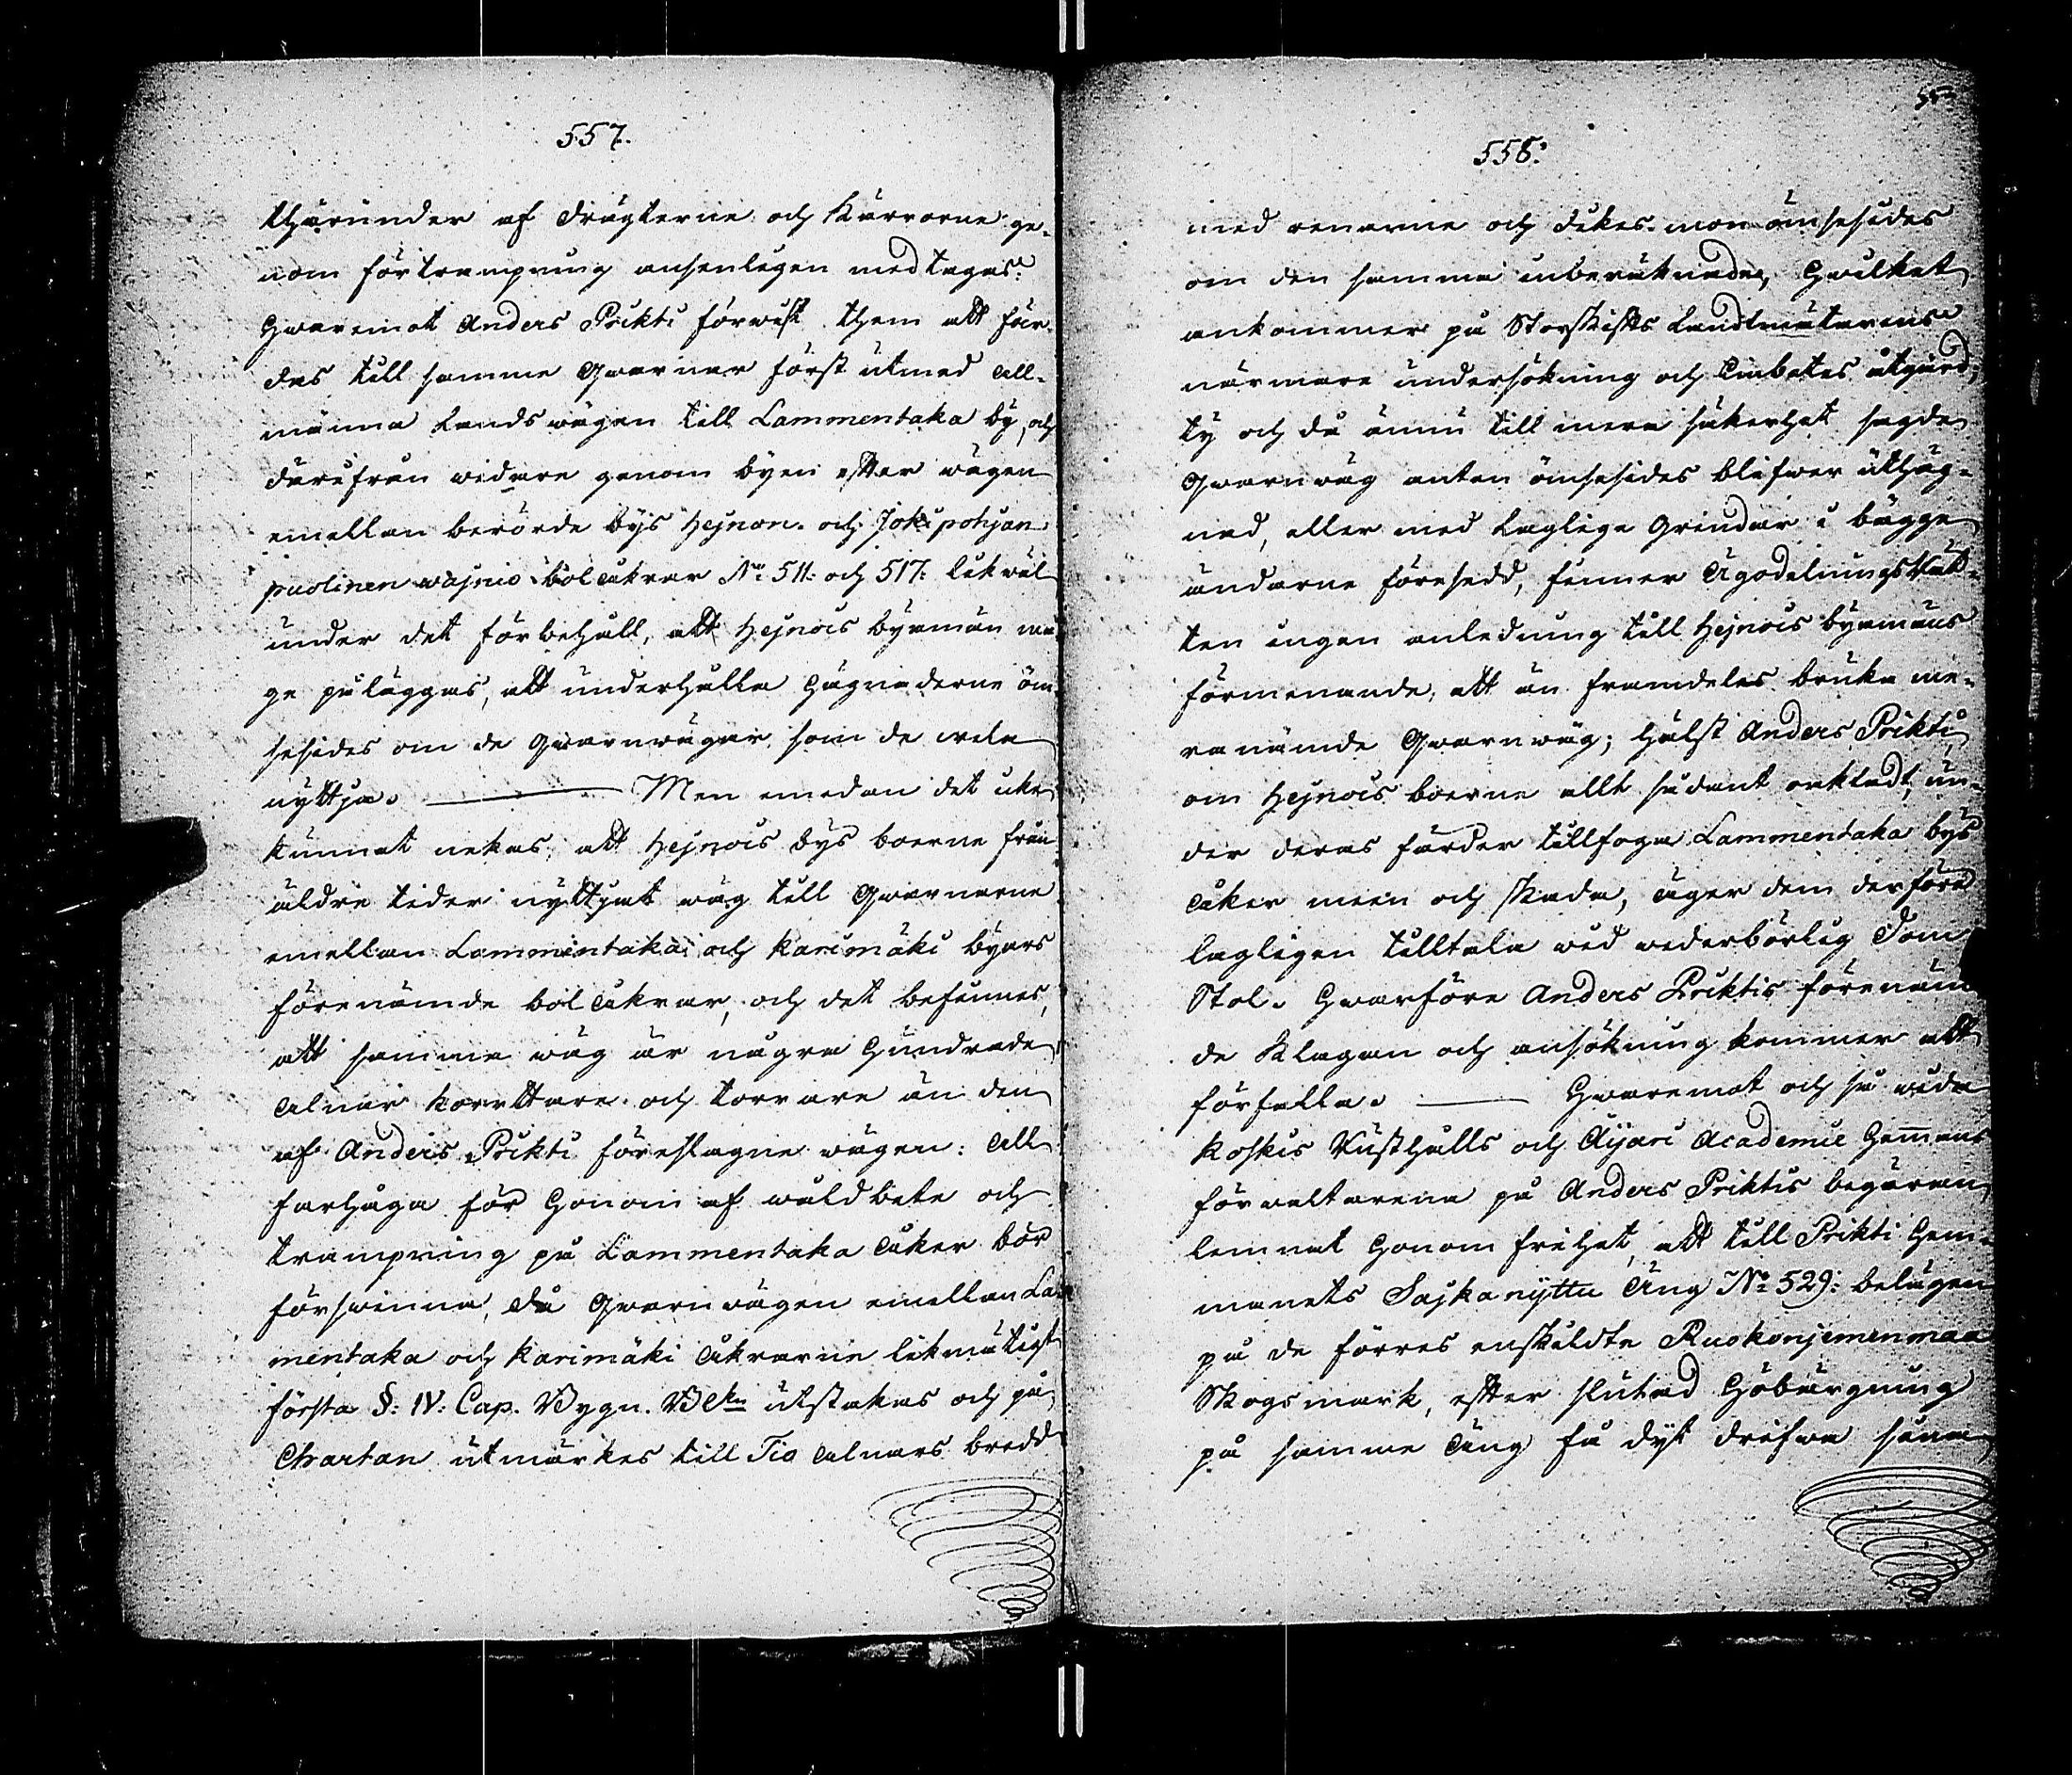 557.
thärunder af Dragterne och Kärrorne ge-
nom förtrampning ansenligen medtagas:
Hwaremot Anders Prikti förwist them att fär-
das till samme Qwarnar först utmed All-
männa Landswägen till Lammentaka by, och
därifrån widare genom byen efter wägen
emellan berörde bÿs Hejnon- och Jokipohjan
puolinen wajnio bolåkrar No 511: och 517: likwäl
under det förbehåll, att Hejnois byamän må
ge påläggas, att underhålla hägnaderne öm-
sesides om de Qwarnwägar, som de wela
nyttja. ——— Men emedan det icke
kunnat nekas, att Hejnois bys boerne från
äldre tider nyttjat wäg till Qwarnarne
emellan Lammintaka och Karimäki byars
förenämde bolåkrar, och det befinnes,
att samma wäg är några Hundrade
alnar korrttare och torrare än den
af Anders Prikti föreslagne wägen: All
farhåga för Honom af wåldbete och
trampning på Lammentaka åker bör
förswinna, då Qwarnwägen emellan Lam-
mentaka och Karimäki åkrarne likmätigt
första §: IV: Cap. Bygn. Blkn utstakas och på
Chartan utmärkes till Tio alnars bredd
558.
med renarne och dikes-mon ömsesides
om den samma inberäknade, Hwilket
ankommer på Storskifts Landtmätarens
närmare undersökning och Embetes åtgärd;
ty och då ännu till mera säkerhet sagde
Qwarnwäg anten ömsesides blifwer uthäg-
nad, eller med laglige Grindar i bägge
ändarne försedd, finner ÄgodelningsRät-
ten ingen anledning till Hejnois byamäns
förmenande, att än framdeles bruka me-
ranämde Qwarnwäg; hälst Anders Prikti,
om Hejnois boerne allt sådant oaktadt, un-
der deras färder tillfoga Lammentaka bys
åker meen och skada, äger dem derföre
lagligen tilltala wid wederbörlig Dom-
Stol. Hwarföre Anders Priktis förenäm
de Klagan och ansökning kommer att
förfalla. ——— Hwaremot och så wida
Koskis Rusthålls och Äÿari Academie Hemmans
förwaltarena på Anders Priktis begäran
lemnat Honom frihet, att till Prikti Hem-
manets Sajkanÿttu Äng No 529: belägen
på de förres enskildte Ruokonjemenmaa
Skogsmark, efter slutad Höbärgning
på samme äng få dyt drifwa sina